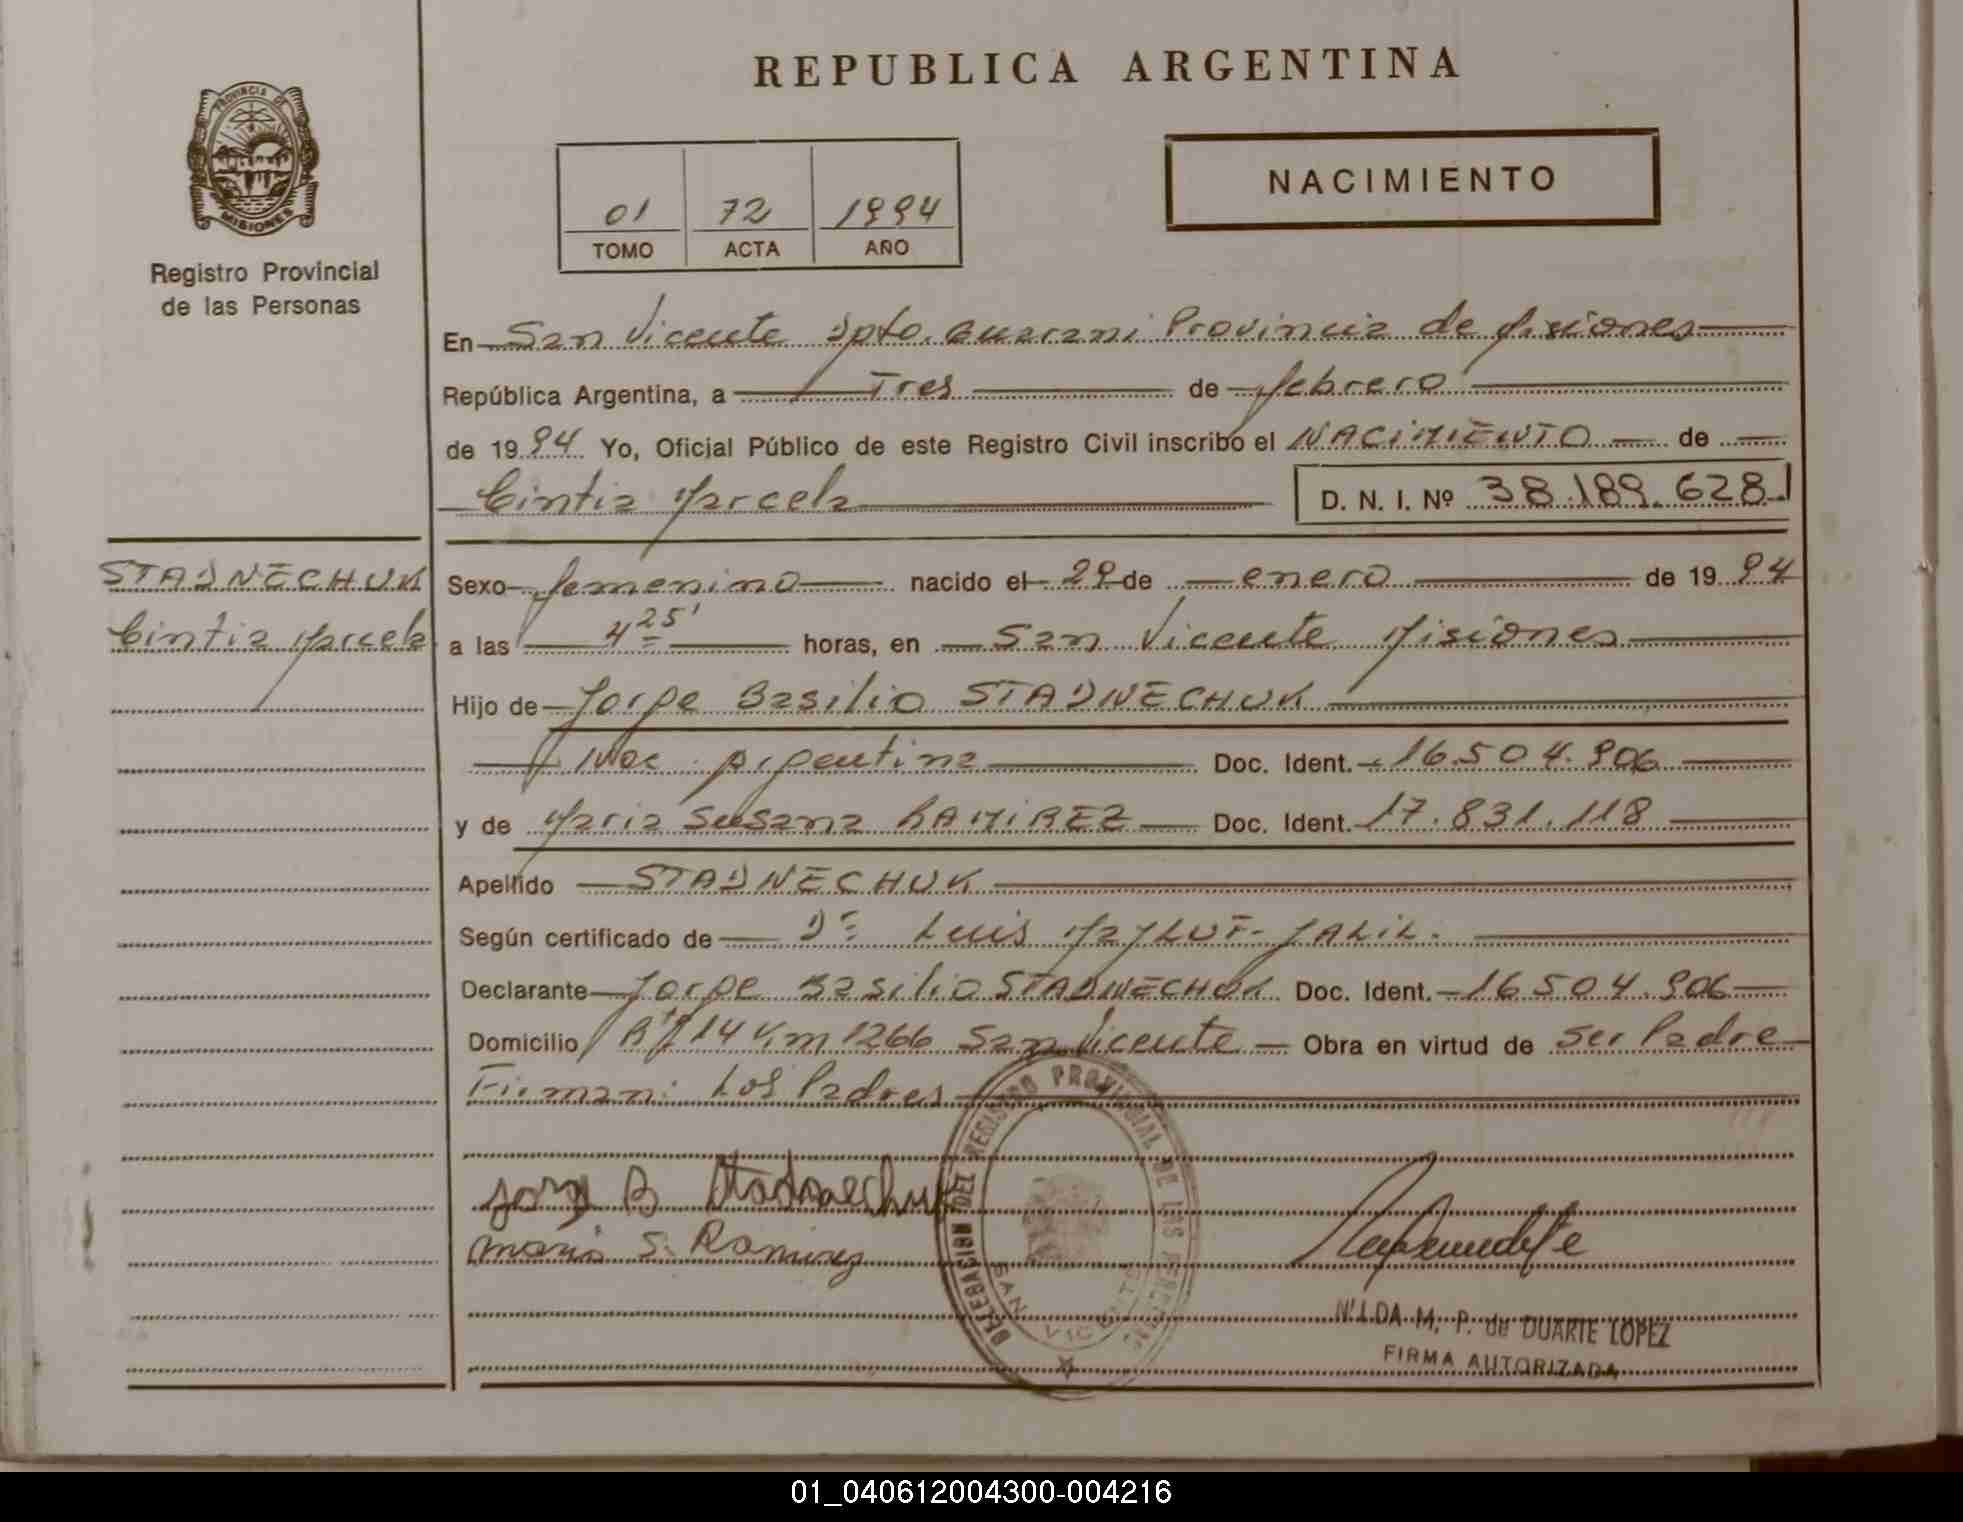 REPUBLICA ARGENTINA
PROVINCIA DE
MISIONES
Registro Provincial
de las Personas
01 72 1994
TOMO ACTA AÑO
NACIMIENTO
En San Vicente Dpto. Guarani Provincia de Misiones
República Argentina, a Tres de febrero
de 1994 Yo, Oficial Público de este Registro Civil inscribo el NACIMIENTO de
Cintia Marcela D. N. I. Nº 38.189.628
STADNECHUK
Cintia Marcela
Sexo femenino nacido el 29 de enero de 1994
a las 4 25' horas, en San Vicente Misiones
Hijo de Jorge Basilio STADNECHUK
Nac. Argentina Doc. Ident. 16.504.906
y de Maria Susana RAMIREZ Doc. Ident. 17.831.118
Apellido STADNECHUK
Según certificado de Dr. Luis JALIL.
Declarante Jorge Basilio STADNECHUK Doc. Ident. 16.504.906
Domicilio 14 Km 1266 San Vicente Obra en virtud de ser Padre
Firman: Los Padres
Jorge B Stadnechuk
Maria S. Ramirez
DELEGACION DEL REGISTRO PROVINCIAL DE LAS PERSONAS
SAN VICENTE
NILDA M. P. de DUARTE LOPEZ
FIRMA AUTORIZADA
01_040612004300-004216